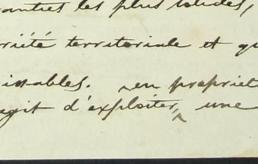 les plus solides,
riété territoriale et qu
issables. en propriet
agit d'exploiter, une